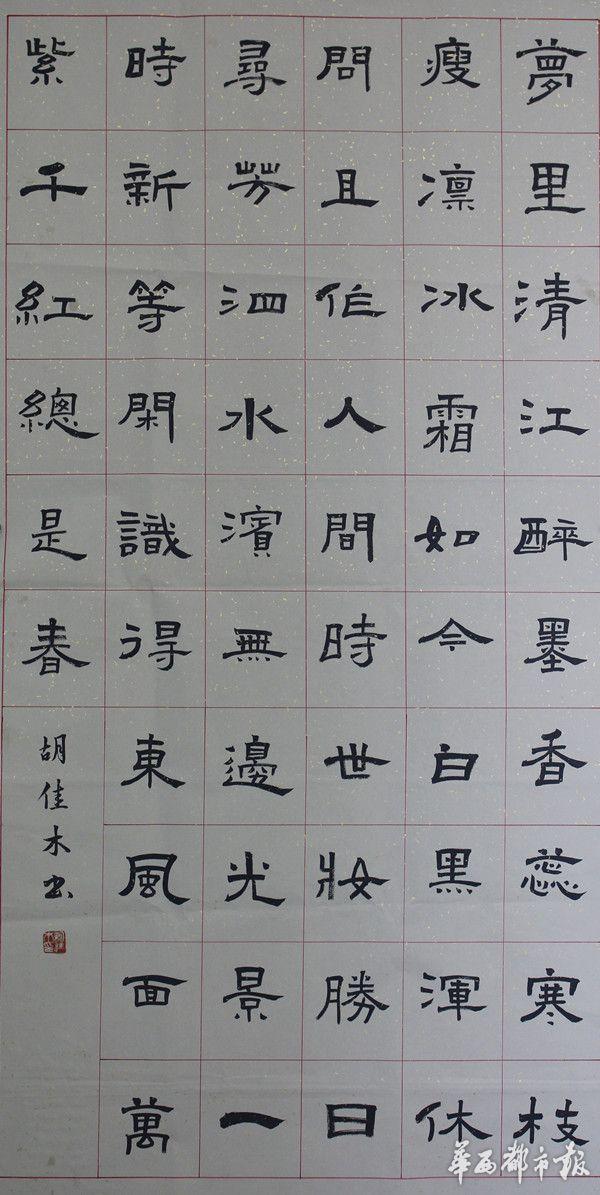 夢里清江醉墨香蕊寒枝
瘦凛冰霜如今白黑渾休
問且作人間時世妝勝日
尋芳泗水濱無邊光景一
時新等閑識得東風面萬
紫千紅總是春
胡佳木书
華西都市报